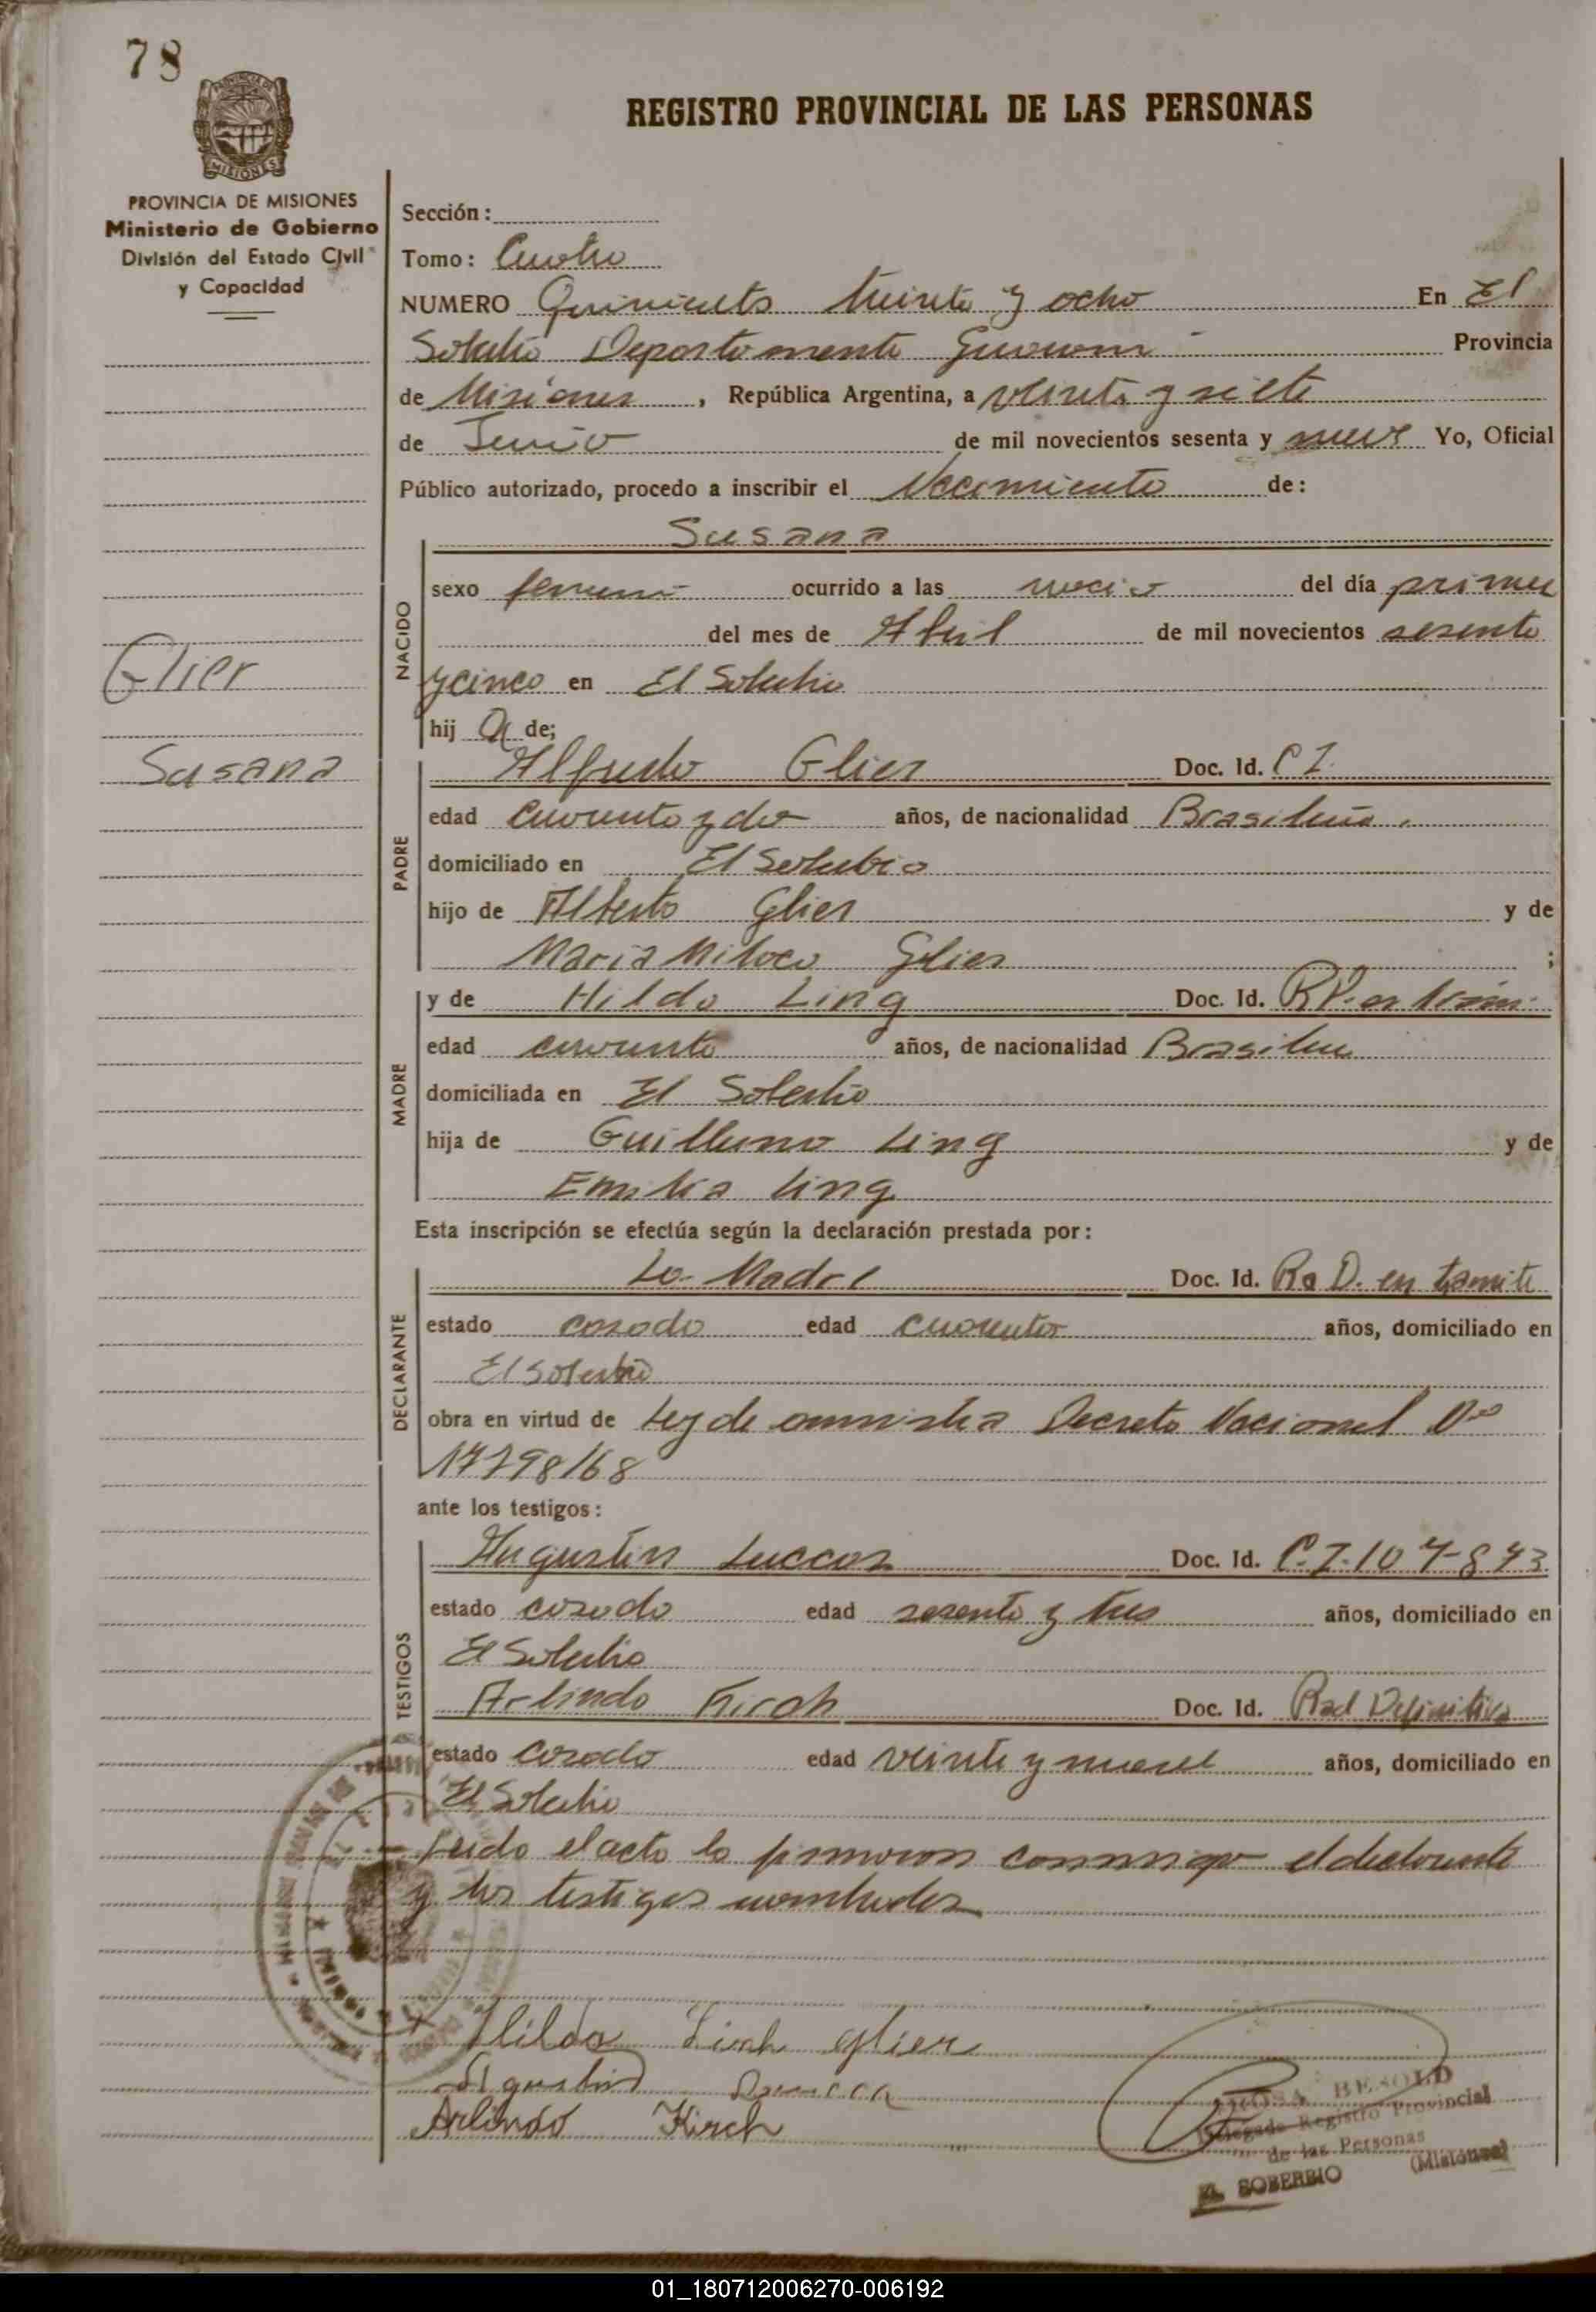 78
REGISTRO PROVINCIAL DE LAS PERSONAS
MISIONES
PROVINCIA DE MISIONES
Ministerio de Gobierno
División del Estado Civil
y Capacidad
Sección:
Tomo: Cuatro
NUMERO Quinientos treinta y ocho En El
Soberbio Departamento Guarani Provincia
de Misiones, República Argentina, a veinte y siete
de Junio de mil novecientos sesenta y nueve Yo, Oficial
Público autorizado, procedo a inscribir el Nacimiento de:
Susana
NACIDO
sexo femenino ocurrido a las del día primero
del mes de Abril de mil novecientos sesenta
y cinco en El Soberbio
hij a de;
Glier
Susana
PADRE
Alfredo Glier Doc. Id. C I.
edad cuarenta y dos años, de nacionalidad Brasileña
domiciliado en El Soberbio
hijo de Alberto Glier y de
Maria Glier ;
MADRE
y de Hilda Ling Doc. Id.
edad cuarenta años, de nacionalidad Brasileña
domiciliada en El Soberbio
hija de Guillermo Ling y de
Emilia Ling
Esta inscripción se efectúa según la declaración prestada por:
DECLARANTE
La Madre Doc. Id. Ra D. en tramite
estado casado edad cuarenta años, domiciliado en
El Soberbio
obra en virtud de Ley de amnistia Decreto Nacional Nº
17798/68
ante los testigos:
TESTIGOS
Augustin Luccas Doc. Id. C.I.
estado casado edad sesenta y tres años, domiciliado en
El Soberbio
Arlindo Kirch Doc. Id. Rad Definitiva
estado casado edad veinte y nueve años, domiciliado en
El Soberbio
Leido el acto lo firmaron conmigo el declarante
y los testigos nombrados
Hilda Glier
Agustin
Arlindo Kirch
BESOLD
Delegado Registro Provincial
de las Personas
EL SOBERBIO (Misiones)
01_180712006270-006192